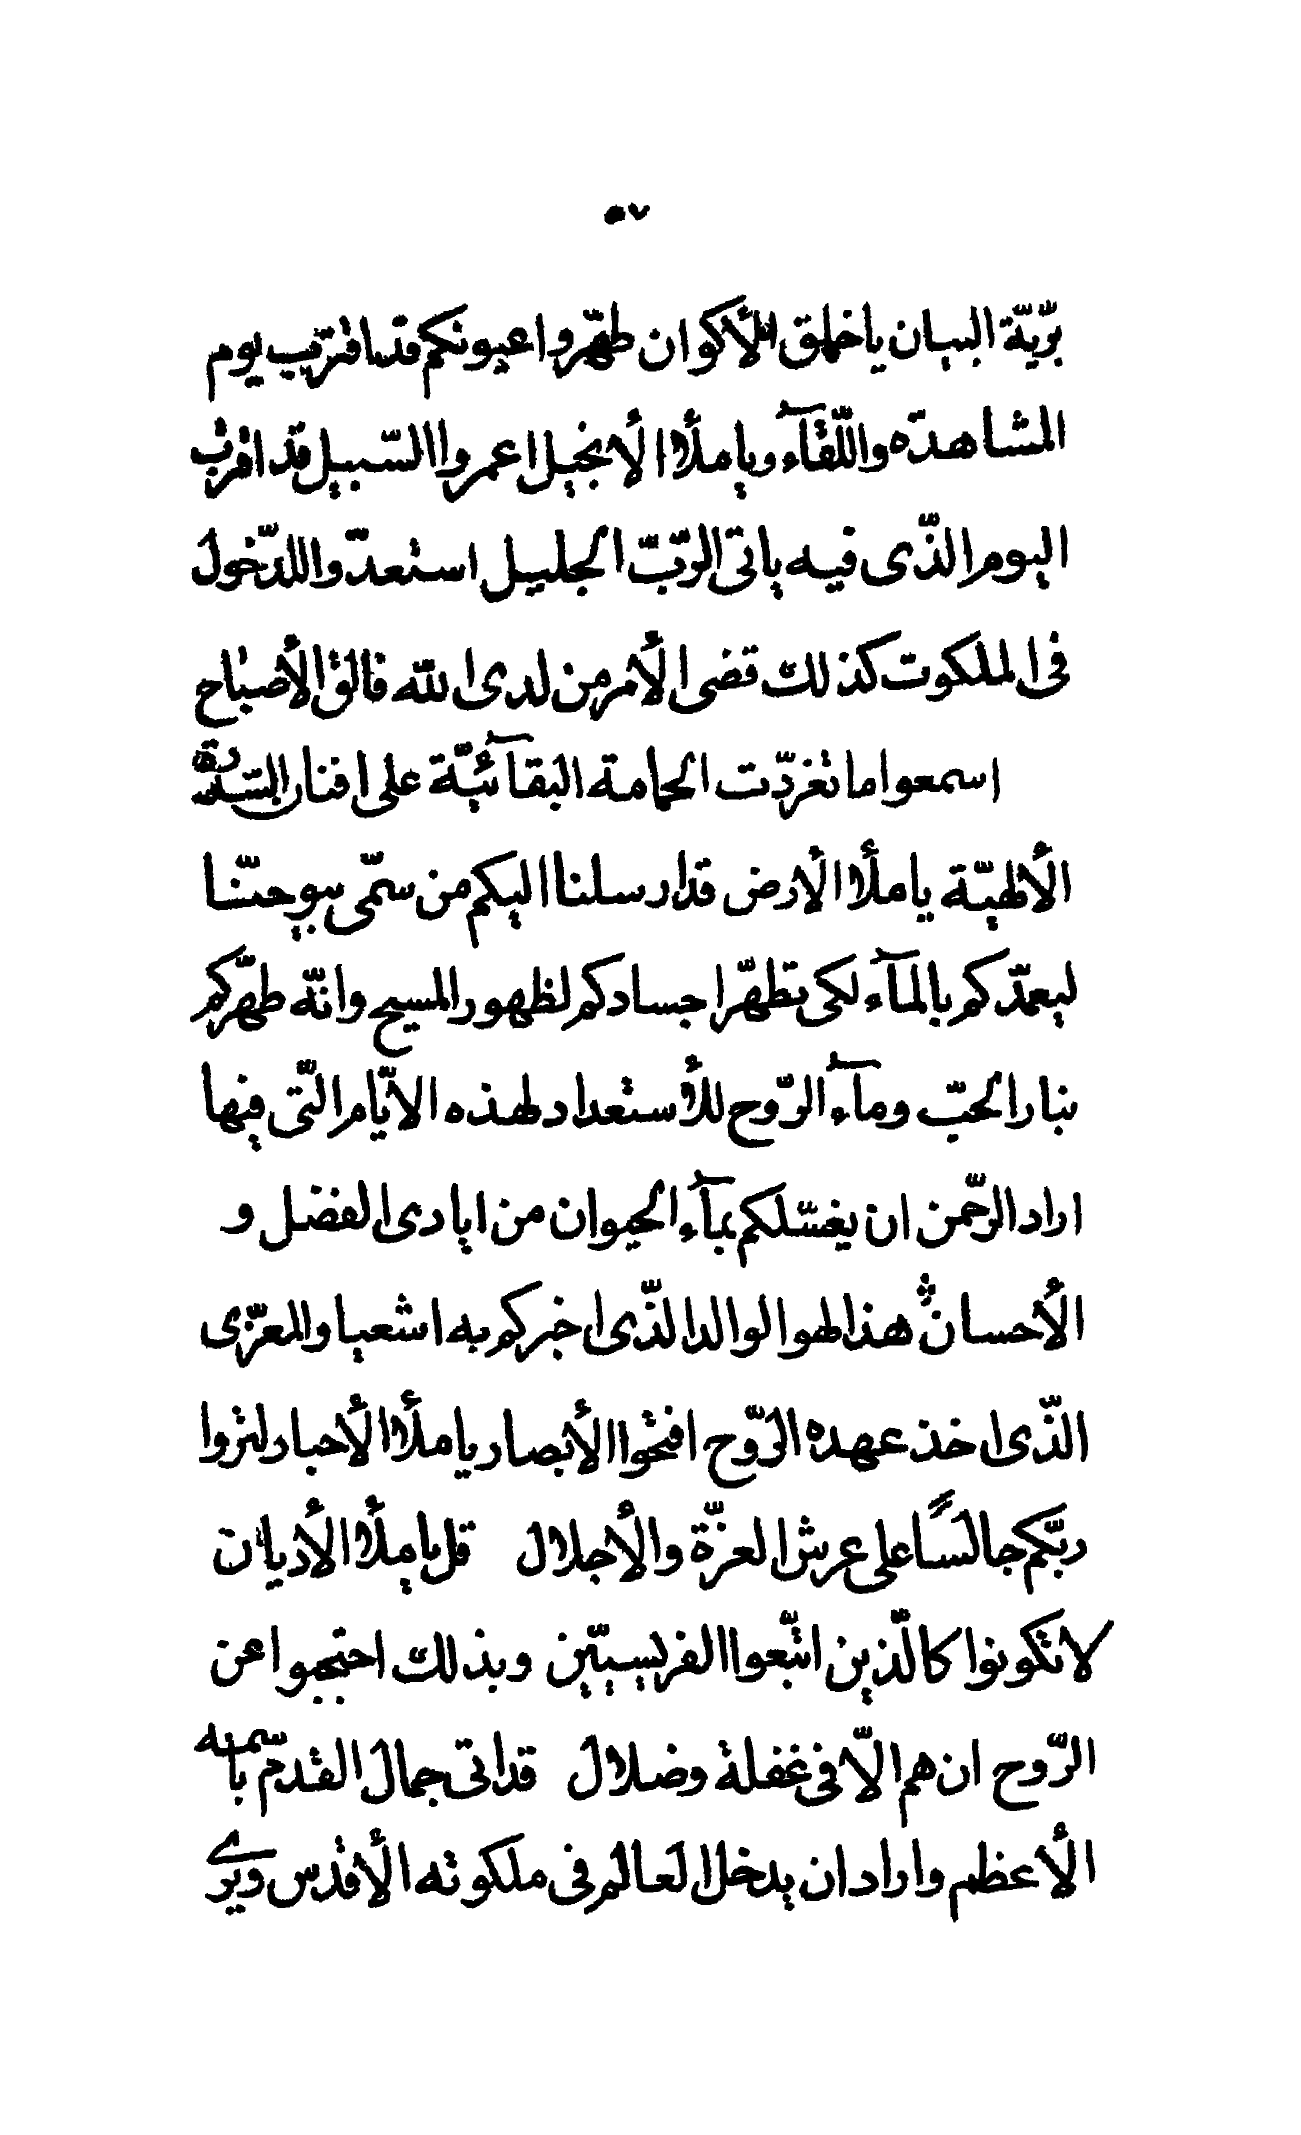 ٥٧
بريّة البيان يا خلق الأكوان طهّروا عيونكم قد اقترب يوم
المشاهدة واللّقآء ويا ملأ الأنجيل اعمروا السّبيل قد اقترب
اليوم الذّى فيه ياتى الرّبّ الجليل استعدّوا للدّخول
فى الملكوت كذلك قضى الأمر من لدى اللّه فالق الأصباح
اسمعوا ما تغرّدت الحمامة البقآئيّة على افنان السّدرة
الألهيّة يا ملأ الأرض قد ارسلنا اليكم من سمّى بيوحنّا
ليعمّدكم بالمآء لكى تطهّر اجسادكم لظهور المسيح وانّه طهّركم
بنار الحبّ ومآء الرّوح للأستعداد لهذه الايّام الّتى فيها
اراد الرّحمن ان يغسّلكم بمآء الحيوان من ايادى الفضل و
الأحسان هذا لهو الوالد الذّى اخبركم به اشعيا والمعزّى
الذّى اخذ عهده الرّوح افتحوا الأبصار يا ملأ الأحبار لتروا
ربّكم جالسًا على عرش العزّة والأجلال قل يا ملأ الأديان
لا تكونوا كالّذين اتّبعوا الفريسيّين وبذلك احتجبوا عن
الرّوح ان هم الّا فى غفلة وضلال قد اتى جمال القدم باسمه
الأعظم واراد ان يدخل العالم فى ملكوته الأقدس ويرى